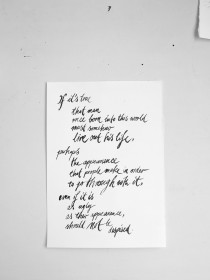 If it's true
that man
once born into this world
must somehow
live out his life,
perhaps
the appearance
that people make in order
to go through with it,
even if it is
as ugly
as their appearance,
should not be
despised.